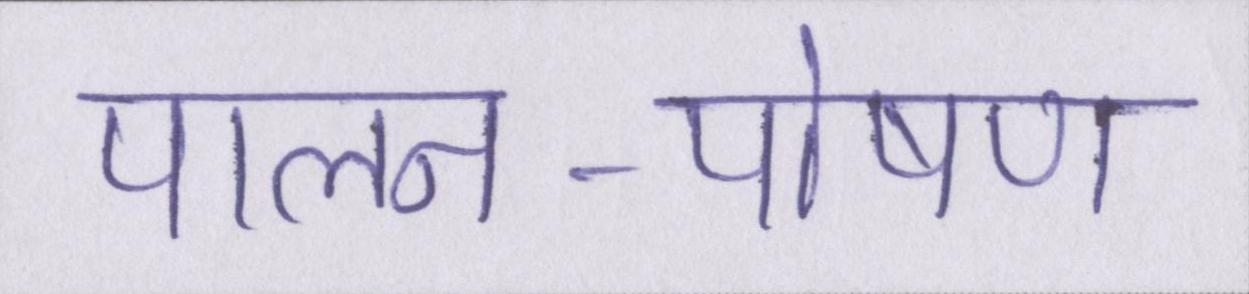 पालन-पोषण